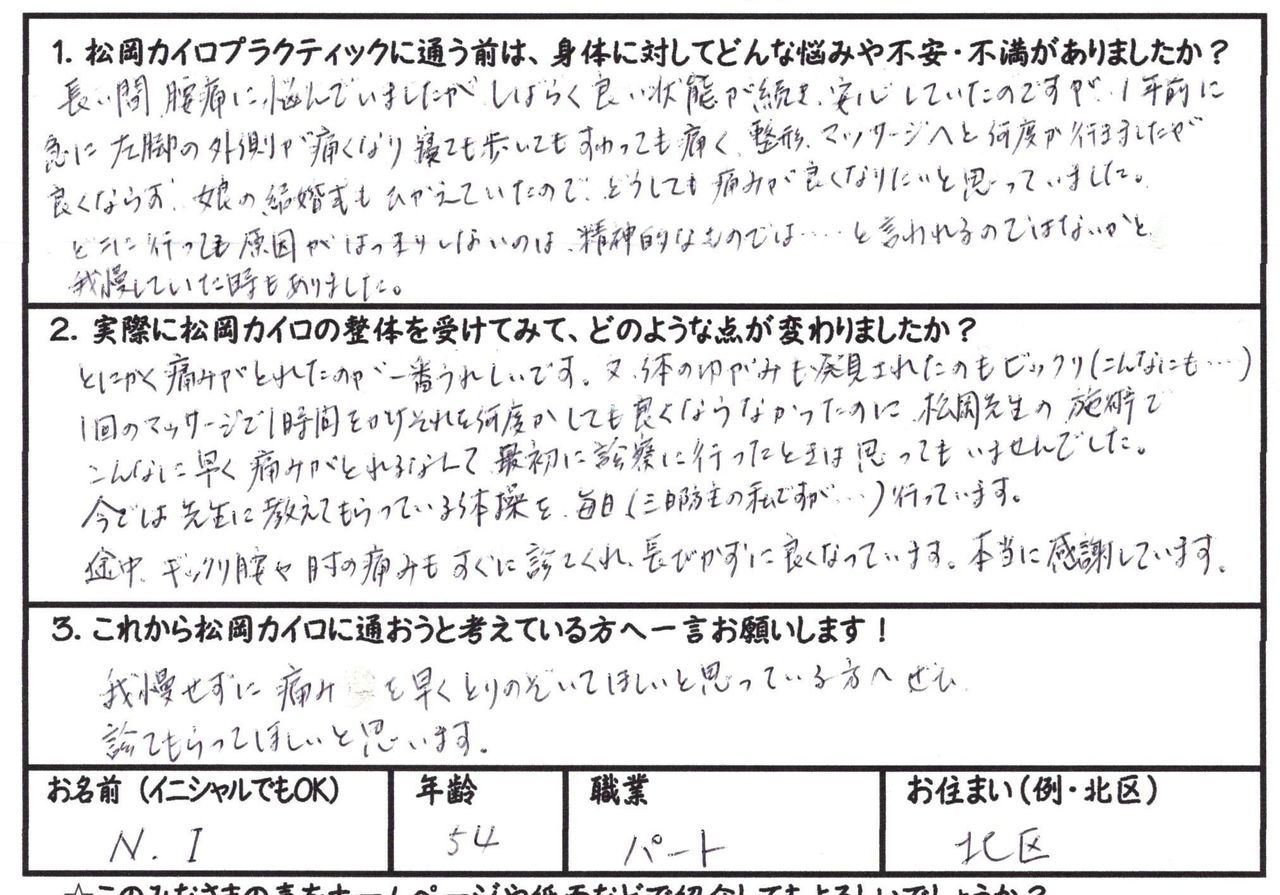 1. 松岡カイロプラクティックに通う前は、身体に対してどんな悩みや不安・不満がありましたか？
長い間、腰痛に悩んでいましたが、しばらく良い状態が続き、安心していたのですが、1年前に
急に左脚の外側が痛くなり寝ても歩いてもすわっても痛く、整形、マッサージへと何度か行きましたが
良くならず、娘の結婚式もひかえていたので、どうしても痛みが良くなりたいと思っていました。
どこに行っても原因がはっきりしないのは、精神的なものでは……と言われるのではないかと
我慢していた時もありました。
2. 実際に松岡カイロの整体を受けてみて、どのような点が変わりましたか？
とにかく痛みがとれたのが一番うれしいです。又、体のゆがみも発見されたのもビックリ(こんなにも……)
1回のマッサージで1時間をかけそれを何度かしても良くならなかったのに、松岡先生の施術で
こんなに早く痛みがとれるなんて、最初に診療に行ったときは思ってもいませんでした。
今では先生に教えてもらっている体操を、毎日(三日防主の私ですが…)行っています。
途中、ギックリ腰や肘の痛みもすぐに診てくれ、長びかずに良くなっています。本当に感謝しています。
3. これから松岡カイロに通おうと考えている方へ一言お願いします！
我慢せずに痛みを早くとりのぞいてほしいと思っている方へぜひ、
診てもらってほしいと思います。
お名前（イニシャルでもOK） 年齢 職業 お住まい（例・北区）
N. I 54 パート 北区
☆このみなさまの声をホームページや紙面などで紹介してもよろしいでしょうか？